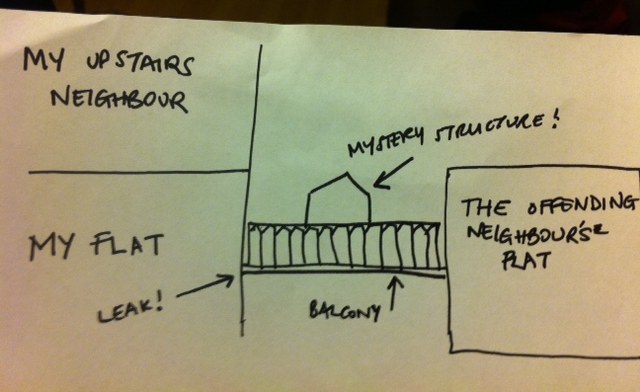 MY UPSTAIRS
NEIGHBOUR
MYSTERY STRUCTURE!
THE OFFENDING
NEIGHBOUR'S
FLAT
MY FLAT
LEAK!
BALCONY